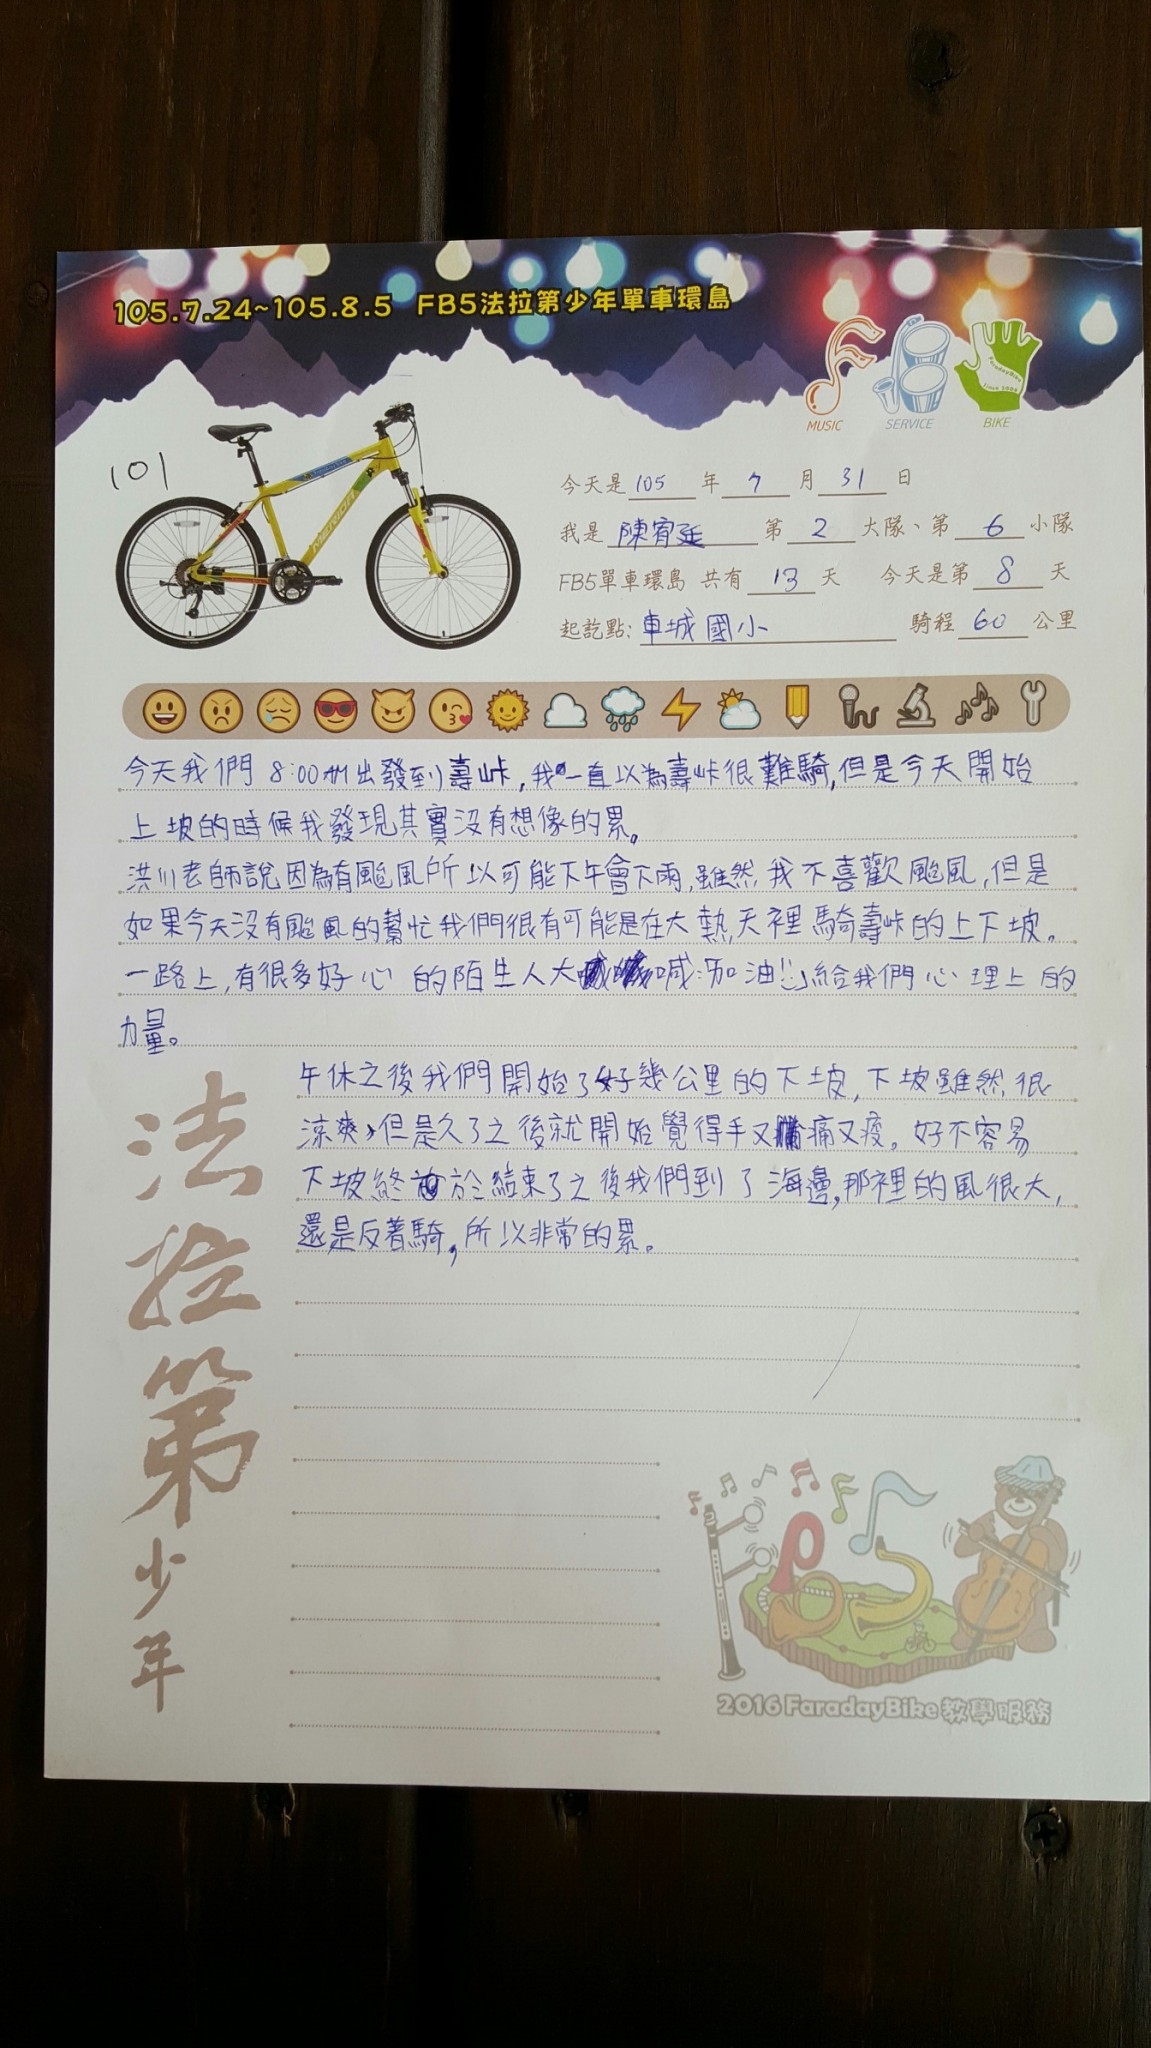 105.7.24~105.8.5 FB5法拉第少年單車環島
MUSIC SERVICE BIKE
FaradayBike
Since 2004
101
MERIDA
今天是 105 年 7 月 31 日
我是 陳宥延 第 2 大隊、第 6 小隊
FB5單車環島 共有 13 天 今天是第 8 天
起訖點: 車城國小 騎程 60 公里
今天我們 8:00AM出發到壽峠,我一直以為壽峠很難騎,但是今天開始
上坡的時候我發現其實沒有想像的累。
洪川老師說因為有颱風所以可能下午會下雨,雖然我不喜歡颱風,但是
如果今天沒有颱風的幫忙我們很有可能是在大熱天裡騎壽峠的上下坡。
一路上,有很多好心的陌生人大喊:加油!!」給我們心理上的
力量。
午休之後我們開始了好幾公里的下坡,下坡雖然很
涼爽,但是久了之後就開始覺得手又痛又痠。好不容易
下坡終於結束了之後我們到了海邊,那裡的風很大,
還是反著騎,所以非常的累。
法拉第少年
2016 FaradayBike教學服務